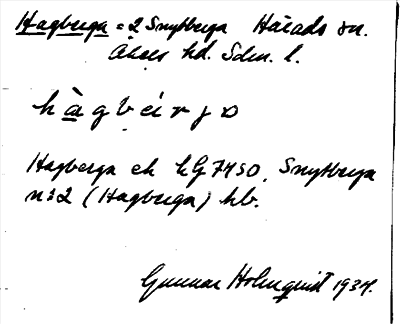 Hagberga = 2 Snytberga Härads sn.
Åkers hd. Sdm. l.
hàgbérja
Hagberga ek hG7450, Snytberga
n:2 (Hagberga) hb.
Gunnar Holmquist 1934.